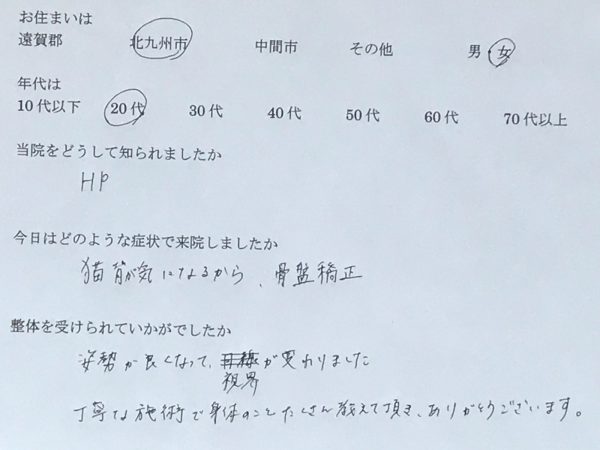 お住まいは
遠賀郡 北九州市 中間市 その他 男・女
年代は
10代以下 20代 30代 40代 50代 60代 70代以上
当院をどうして知られましたか
HP
今日はどのような症状で来院しましたか
猫背が気になるから、骨盤矯正
整体を受けられていかがでしたか
姿勢が良くなって、目線が変わりました
視界
丁寧な施術で身体のことたくさん教えて頂き、ありがとうございます。